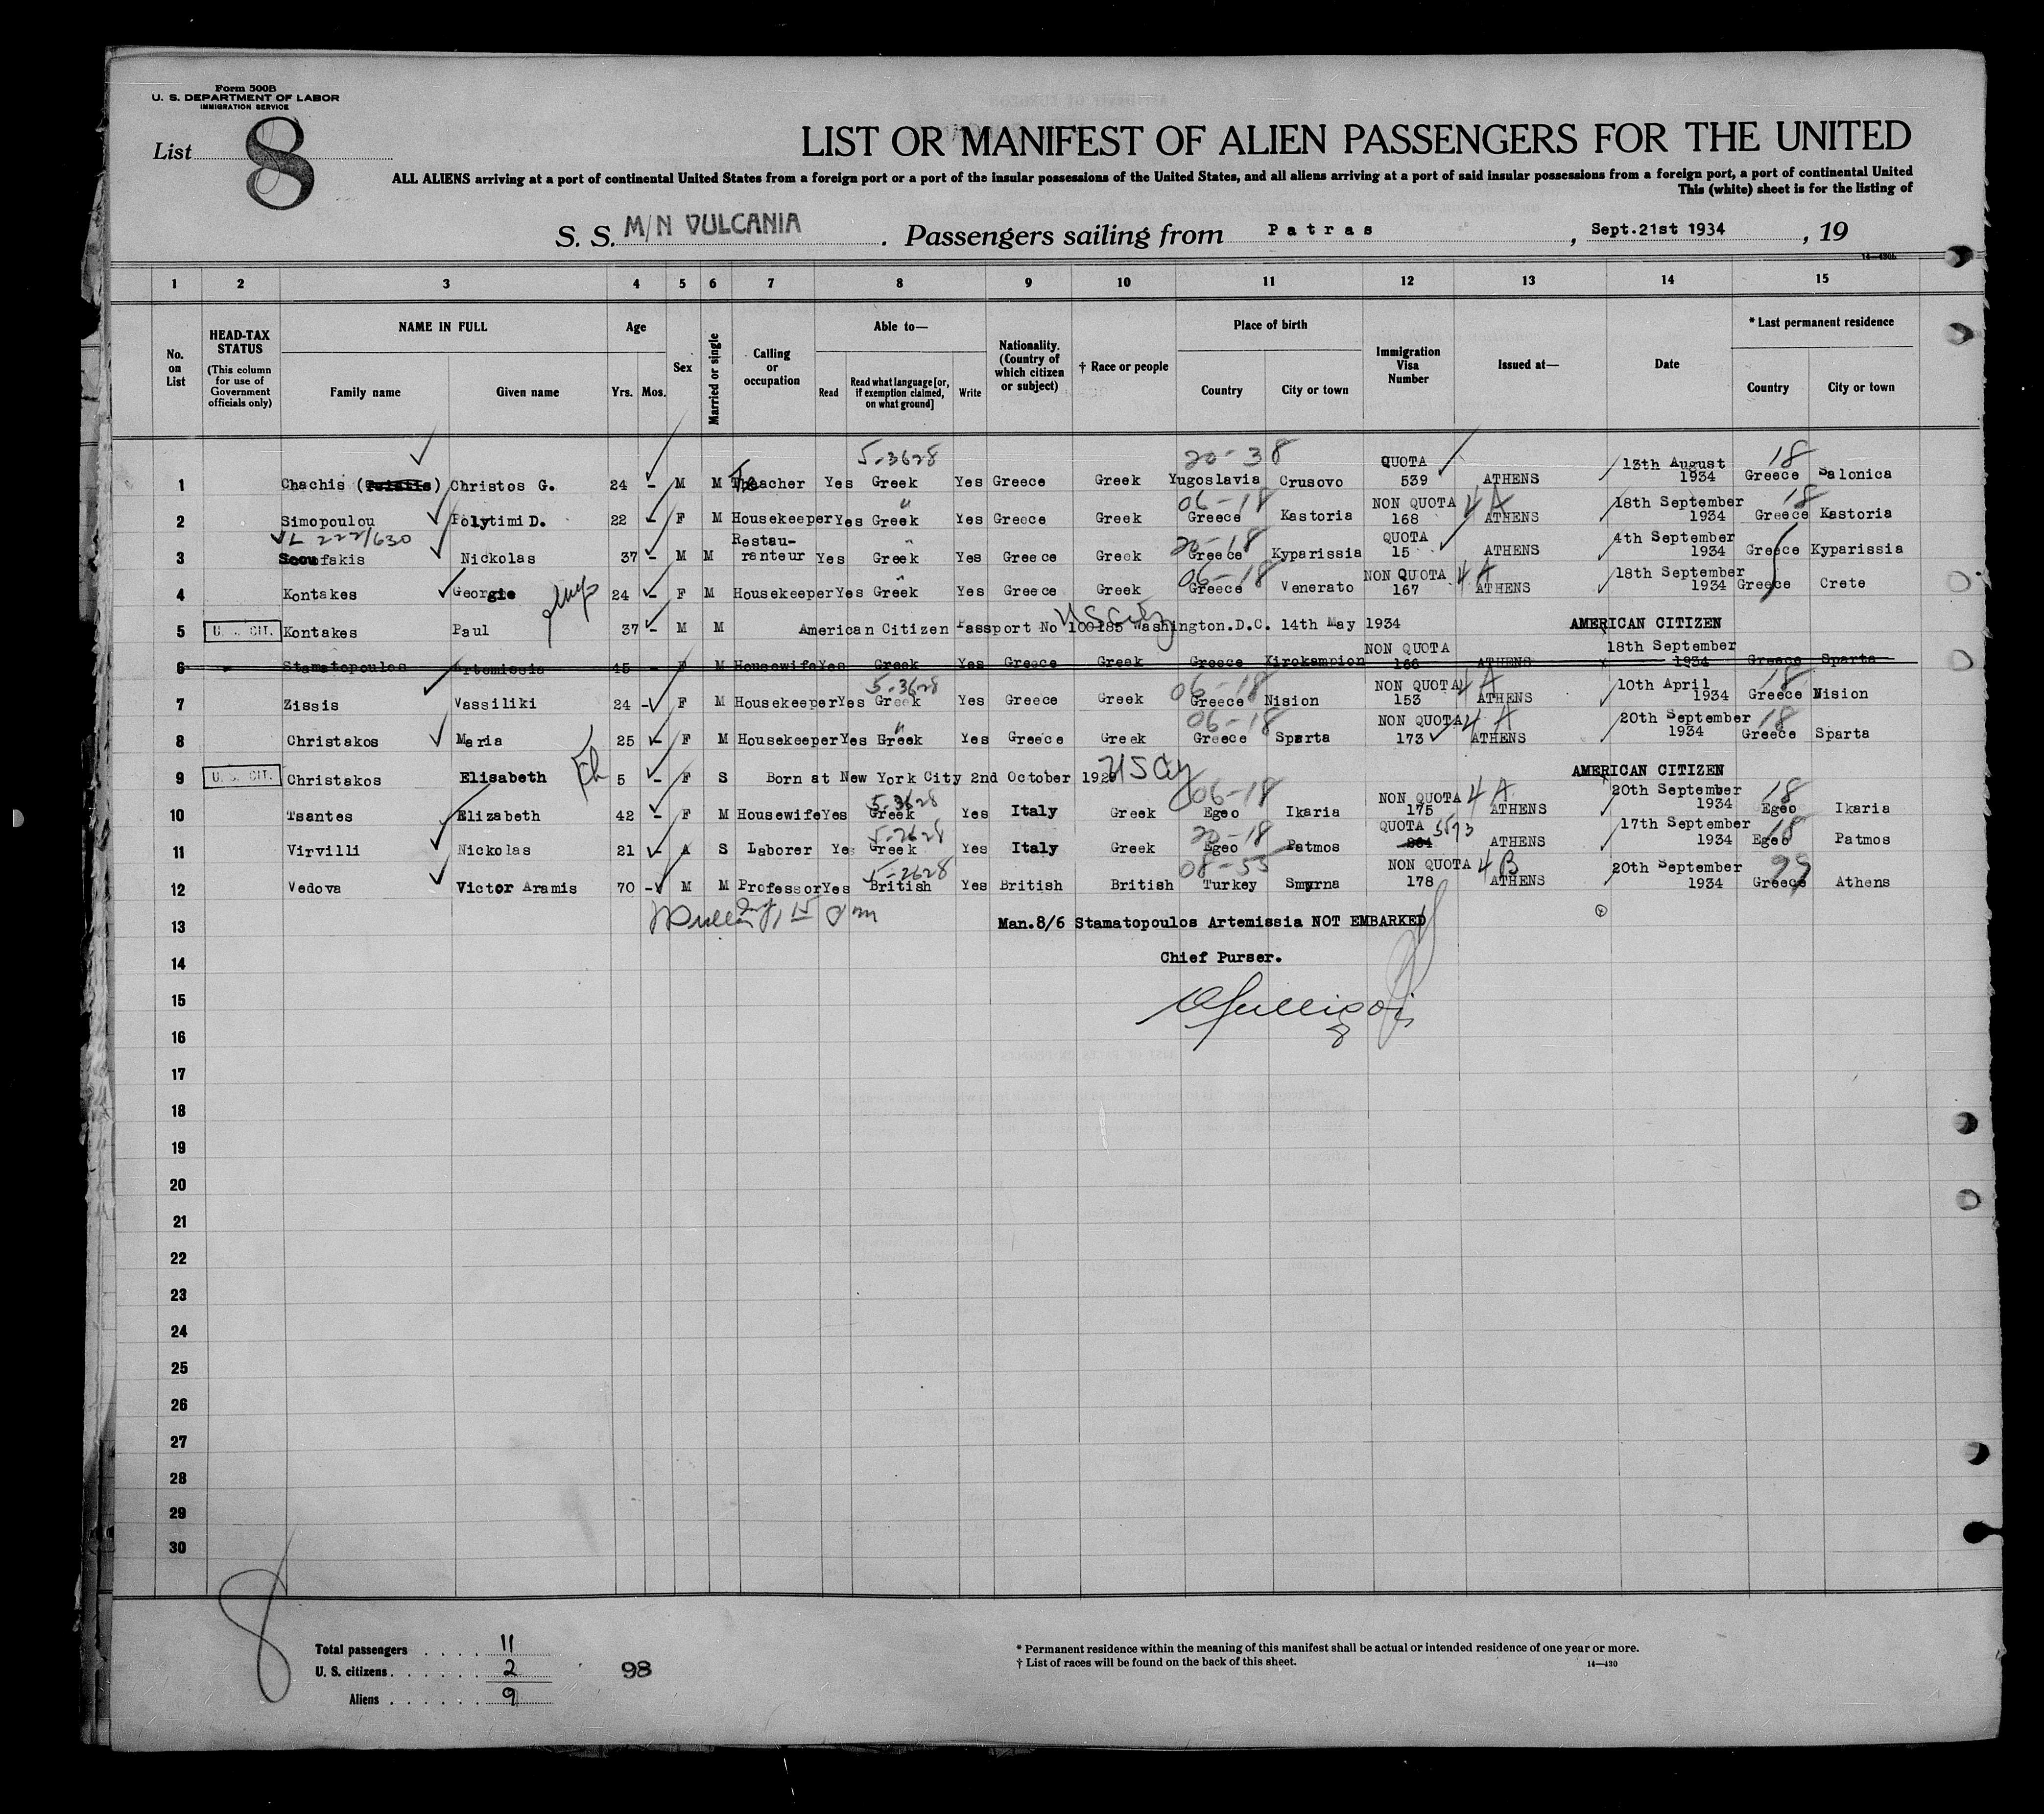 Form 500B
U. S. DEPARTMENT OF LABOR
IMMIGRATION SERVICE
List 8
LIST OR MANIFEST OF ALIEN PASSENGERS FOR THE UNITED
ALL ALIENS arriving at a port of continental United States from a foreign port or a port of the insular possessions of the United States, and all aliens arriving at a port of said insular possessions from a foreign port, a port of continental United
This (white) sheet is for the listing of
S. S. M/N VULCANIA . Passengers sailing from Patras , Sept.21st 1934 , 19
14—430b
1 2 3 4 5 6 7 8 9 10 11 12 13 14 15
No. on List
HEAD-TAX STATUS
(This column for use of Government officials only)
NAME IN FULL
Family name Given name
Age
Yrs. Mos.
Sex
Married or single
Calling or occupation
Able to—
Read Read what language [or, if exemption claimed, on what ground] Write
Nationality. (Country of which citizen or subject)
† Race or people
Place of birth
Country City or town
Immigration Visa Number
Issued at—
Date
* Last permanent residence
Country City or town
5-3628 20-38 QUOTA 13th August 18
1 Chachis ( ) Christos G. 24 - M M Teacher Yes Greek Yes Greece Greek Yugoslavia Crusovo 539 ATHENS 1934 Greece Salonica
" 06-18 NON QUOTA 4 A 18th September 18
2 Simopoulou Polytimi D. 22 - F M Housekeeper Yes Greek Yes Greece Greek Greece Kastoria 168 ATHENS 1934 Greece Kastoria
VL 222/630 Restau- " 20-18 QUOTA 4th September
3 Scoufakis Nickolas 37 - M M renteur Yes Greek Yes Greece Greek Greece Kyparissia 15 ATHENS 1934 Greece Kyparissia
" 06-18 NON QUOTA 4 A 18th September
4 Kontakes Georgie 24 - F M Housekeeper Yes Greek Yes Greece Greek Greece Venerato 167 ATHENS 1934 Greece Crete
US City
5 U.S. CIT. Kontakes Paul 37 - M M American Citizen Passport No 100185 Washington.D.C. 14th May 1934 AMERICAN CITIZEN
NON QUOTA 18th September
6 Stamatopoulos Artemissia 45 - F M Housewife Yes Greek Yes Greece Greek Greece Kirokampion 166 ATHENS 1934 Greece Sparta
5-3628 06-18 NON QUOTA 4 A 10th April 18
7 Zissis Vassiliki 24 - F M Housekeeper Yes Greek Yes Greece Greek Greece Nision 153 ATHENS 1934 Greece Nision
" 06-18 NON QUOTA 4 A 20th September 18
8 Christakos Maria 25 - F M Housekeeper Yes Greek Yes Greece Greek Greece Sparta 173 ATHENS 1934 Greece Sparta
9 U.S. CIT. Christakos Elisabeth 5 - F S Born at New York City 2nd October 192 US City AMERICAN CITIZEN
5-3628 06-18 NON QUOTA 4 A 20th September 18
10 Tsantes Elizabeth 42 - F M Housewife Yes Greek Yes Italy Greek Egeo Ikaria 175 ATHENS 1934 Egeo Ikaria
5-2628 20-18 QUOTA 5593 17th September 18
11 Virvilli Nickolas 21 - S Laborer Yes Greek Yes Italy Greek Egeo Patmos ATHENS 1934 Egeo Patmos
5-2628 08-55 NON QUOTA 4 B 20th September 99
12 Vedova Victor Aramis 70 - M M Professor Yes British Yes British British Turkey Smyrna 178 ATHENS 1934 Greece Athens
13 Man.8/6 Stamatopoulos Artemissia NOT EMBARKED
14 Chief Purser.
15
16
17
18
19
20
21
22
23
24
25
26
27
28
29
30
8
Total passengers . . . . 11
U. S. citizens . . . . . . 2
Aliens . . . . . . 9
98
* Permanent residence within the meaning of this manifest shall be actual or intended residence of one year or more.
† List of races will be found on the back of this sheet.
14—430